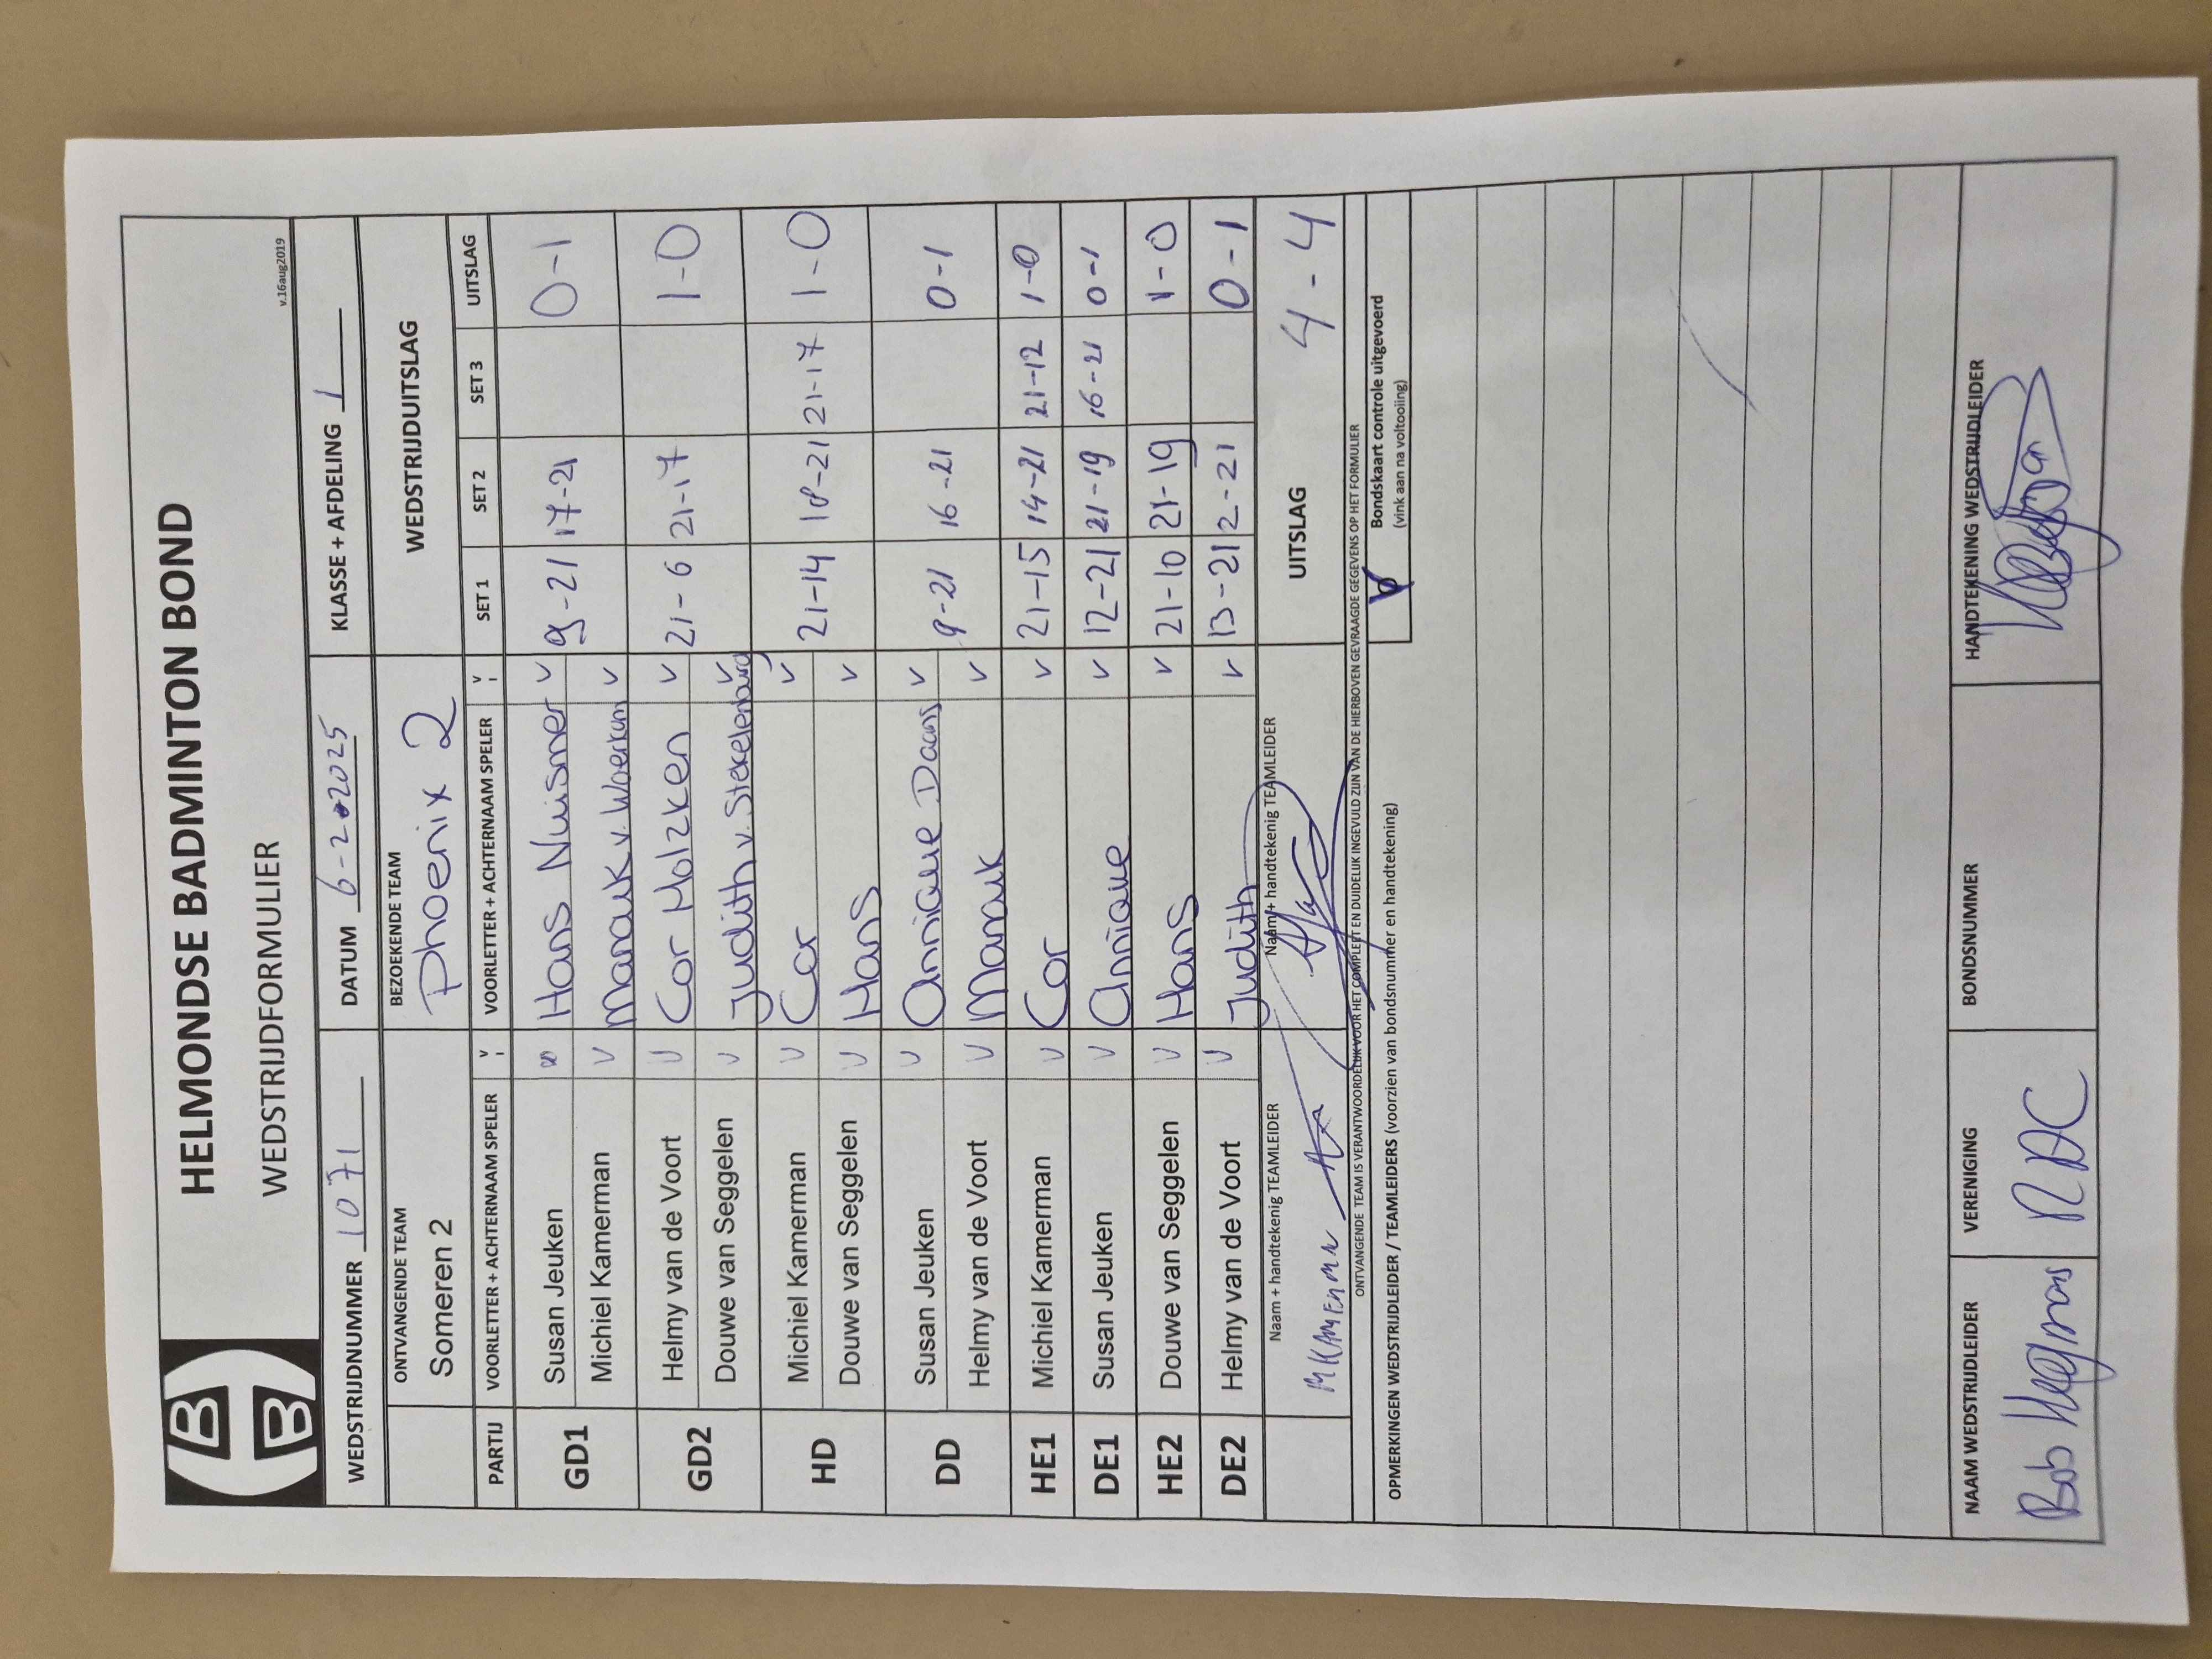 HELMONDSE BADMINTON BOND
WEDSTRIJDFORMULIER
v.16aug2019
WEDSTRIJDNUMMER 1071 DATUM 6-2-2025 KLASSE + AFDELING 1
ONTVANGENDE TEAM BEZOEKENDE TEAM WEDSTRIJDUITSLAG
Someren 2 Phoenix 2
PARTIJ VOORLETTER + ACHTERNAAM SPELER V VOORLETTER + ACHTERNAAM SPELER V SET 1 SET 2 SET 3 UITSLAG
GD1 Susan Jeuken Hans Nuismer v 9-21 17-21 0-1
Michiel Kamerman v Manauk v. Woerkum v
GD2 Helmy van de Voort v Cor Holzken v 21-6 21-17 1-0
Douwe van Seggelen v Judith v. Stekelenburg v
HD Michiel Kamerman v Cor v 21-14 18-21 21-17 1-0
Douwe van Seggelen v Hans v
DD Susan Jeuken v Annique Daans v 9-21 16-21 0-1
Helmy van de Voort v Manauk v
HE1 Michiel Kamerman v Cor v 21-15 14-21 21-12 1-0
DE1 Susan Jeuken v Annique v 12-21 21-19 16-21 0-1
HE2 Douwe van Seggelen v Hans v 21-10 21-19 1-0
DE2 Helmy van de Voort v Judith v 13-21 12-21 0-1
Naam + handtekenig TEAMLEIDER Naam + handtekenig TEAMLEIDER UITSLAG 4-4
M KAMERMAN
ONTVANGENDE TEAM IS VERANTWOORDELIJK VOOR HET COMPLEET EN DUIDELIJK INGEVULD ZIJN VAN DE HIERBOVEN GEVRAAGDE GEGEVENS OP HET FORMULIER
V Bondskaart controle uitgevoerd
(vink aan na voltooiing)
OPMERKINGEN WEDSTRIJDLEIDER / TEAMLEIDERS (voorzien van bondsnummer en handtekening)
NAAM WEDSTRIJDLEIDER VERENIGING BONDSNUMMER HANDTEKENING WEDSTRIJDLEIDER
Bob